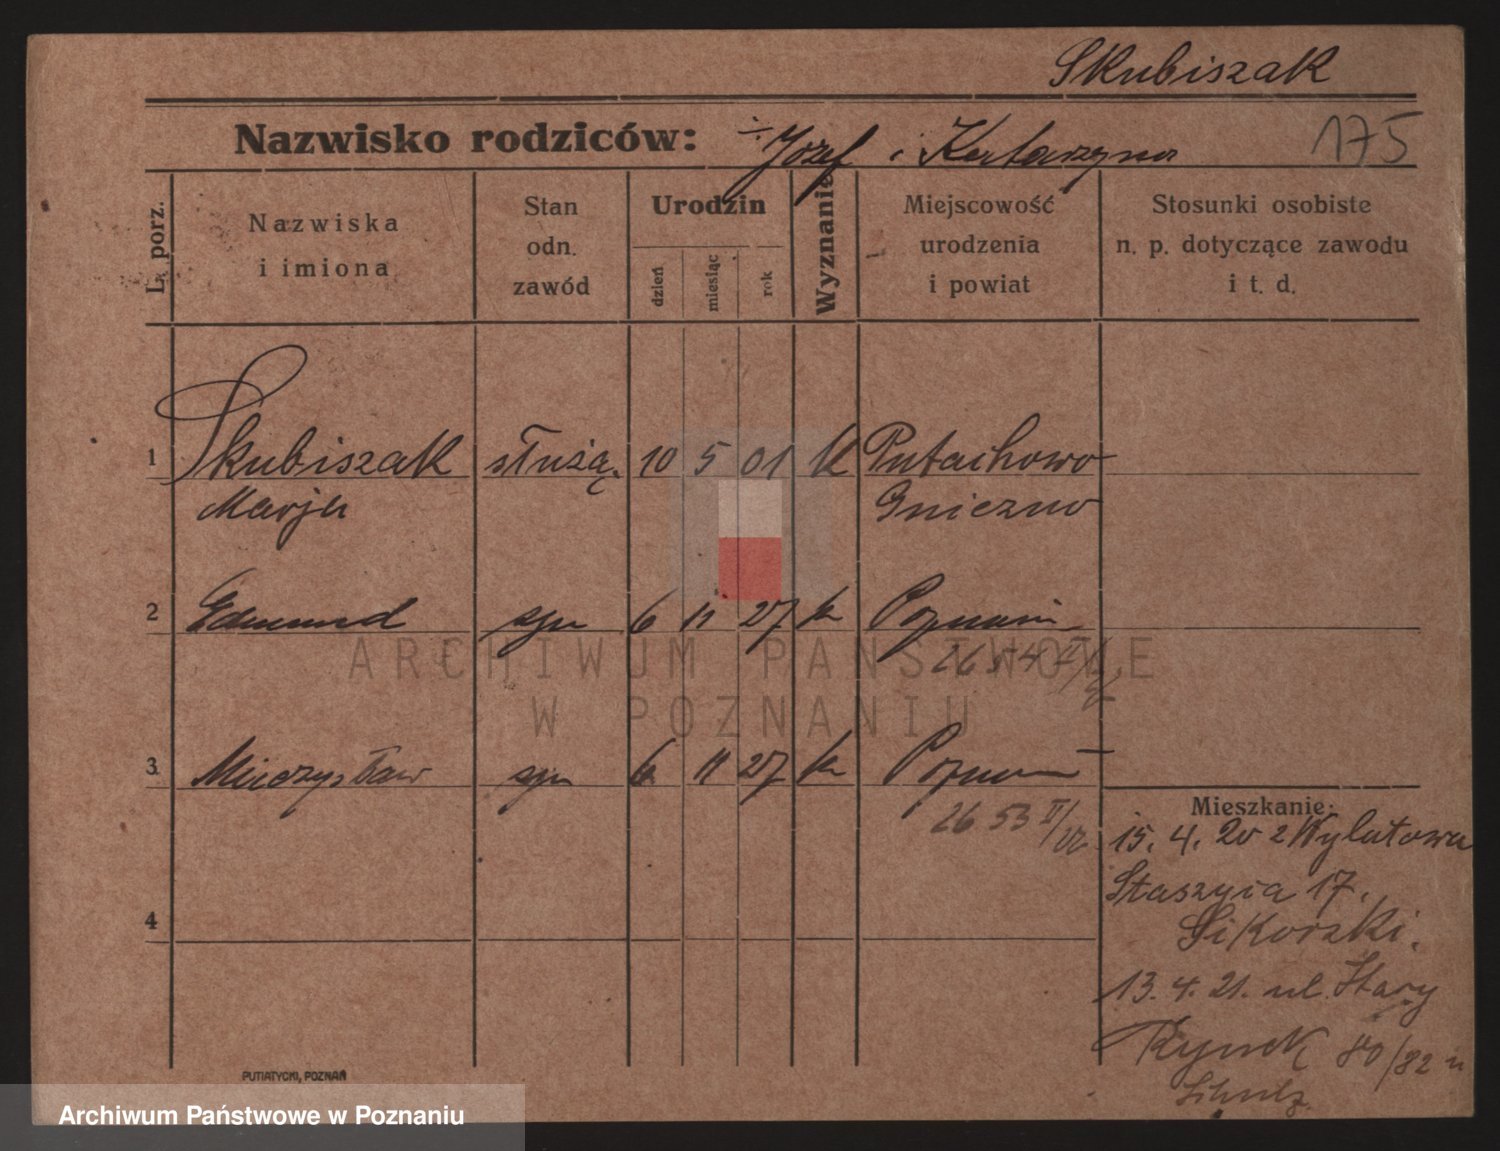 Skubiszak
Nazwisko rodziców: ÷ Józef i Katarzyna 175
L. porz.
Nazwiska
i imiona
Stan
odn.
zawód
Urodzin
dzień
miesiąc
rok
Wyznanie
Miejscowość
urodzenia
i powiat
Stosunki osobiste
n. p. dotyczące zawodu
i t. d.
1 Skubiszak służą. 10 5 01 k Putachowo
Marja Gniezno
2 Edmund syn 6 11 27 k Poznań
26 54 II/
3. Mieczysław syn 6 11 27 k Poznań
26 53 II/
Mieszkanie:
15. 4. 20 z Wylatowa
Staszyca 17.
Sikorski.
13. 4. 21. ul. Stary
Rynek 80/82 u
Schulz
4
PUTIATYCKI, POZNAŃ
ARCHIWUM PAŃSTWOWE
W POZNANIU
Archiwum Państwowe w Poznaniu